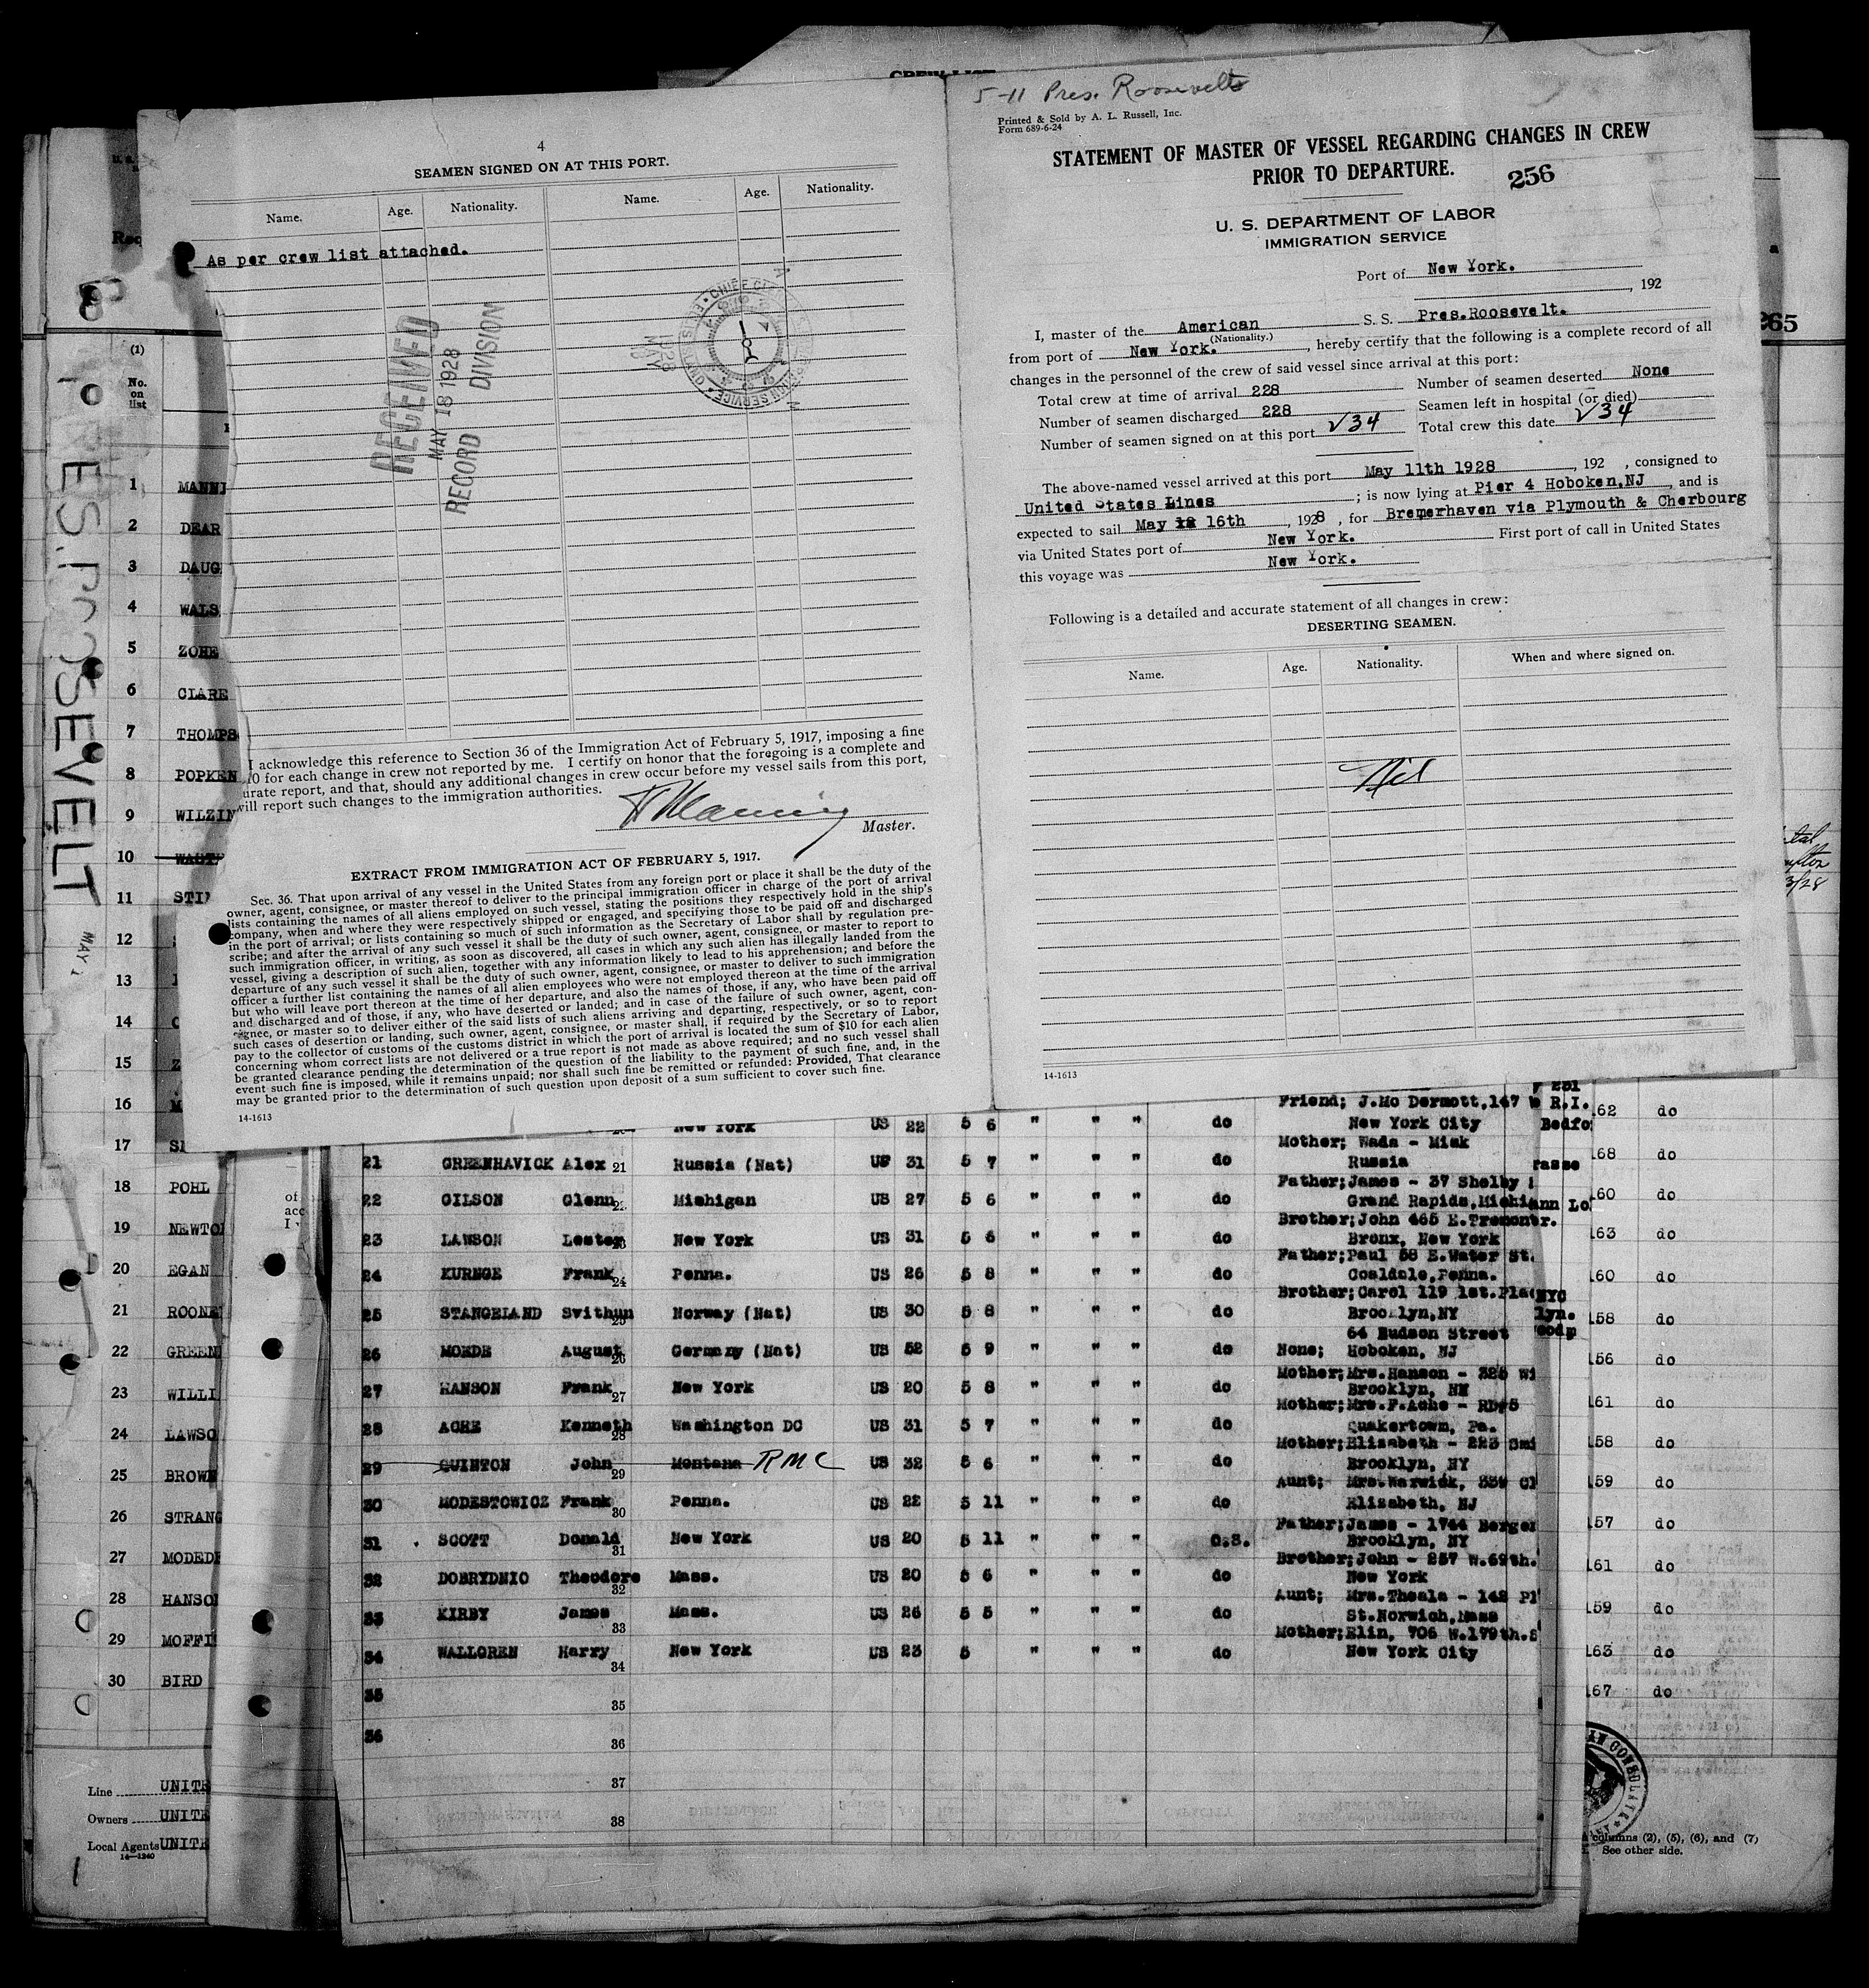 CREW LIST
4
SEAMEN SIGNED ON AT THIS PORT.
Name. Age. Nationality. Name. Age. Nationality.
As per crew list attached.
RECEIVED
MAY 18 1928
RECORD DIVISION
1928
MAY
I acknowledge this reference to Section 36 of the Immigration Act of February 5, 1917, imposing a fine
10 for each change in crew not reported by me. I certify on honor that the foregoing is a complete and
urate report, and that, should any additional changes in crew occur before my vessel sails from this port,
will report such changes to the immigration authorities.
Manning
Master.
EXTRACT FROM IMMIGRATION ACT OF FEBRUARY 5, 1917.
Sec. 36. That upon arrival of any vessel in the United States from any foreign port or place it shall be the duty of the
owner, agent, consignee, or master thereof to deliver to the principal immigration officer in charge of the port of arrival
lists containing the names of all aliens employed on such vessel, stating the positions they respectively hold in the ship's
company, when and where they were respectively shipped or engaged, and specifying those to be paid off and discharged
in the port of arrival; or lists containing so much of such information as the Secretary of Labor shall by regulation pre-
scribe; and after the arrival of any such vessel it shall be the duty of such owner, agent, consignee, or master to report to
such immigration officer, in writing, as soon as discovered, all cases in which any such alien has illegally landed from the
vessel, giving a description of such alien, together with any information likely to lead to his apprehension; and before the
departure of any such vessel it shall be the duty of such owner, agent, consignee, or master to deliver to such immigration
officer a further list containing the names of all alien employees who were not employed thereon at the time of the arrival
but who will leave port thereon at the time of her departure, and also the names of those, if any, who have been paid off
and discharged and of those, if any, who have deserted or landed; and in case of the failure of such owner, agent, con-
signee, or master so to deliver either of the said lists of such aliens arriving and departing, respectively, or so to report
such cases of desertion or landing, such owner, agent, consignee, or master shall, if required by the Secretary of Labor,
pay to the collector of customs of the customs district in which the port of arrival is located the sum of $10 for each alien
concerning whom correct lists are not delivered or a true report is not made as above required; and no such vessel shall
be granted clearance pending the determination of the question of the liability to the payment of such fine, and, in the
event such fine is imposed, while it remains unpaid; nor shall such fine be remitted or refunded: Provided, That clearance
may be granted prior to the determination of such question upon deposit of a sum sufficient to cover such fine.
14-1613
5-11 Pres. Roosevelt
Printed & Sold by A. L. Russell, Inc.
Form 689-6-24
STATEMENT OF MASTER OF VESSEL REGARDING CHANGES IN CREW
PRIOR TO DEPARTURE.
256
U. S. DEPARTMENT OF LABOR
IMMIGRATION SERVICE
Port of New York.
, 192
I, master of the American S. S. Pres.Roosevelt.
(Nationality.)
from port of New York. , hereby certify that the following is a complete record of all
changes in the personnel of the crew of said vessel since arrival at this port:
Total crew at time of arrival 228 Number of seamen deserted None
Number of seamen discharged 228 Seamen left in hospital (or died)
Number of seamen signed on at this port √34 Total crew this date √34
The above-named vessel arrived at this port May 11th 1928 , 192 , consigned to
United States Lines ; is now lying at Pier 4 Hoboken,NJ , and is
expected to sail May 16th , 1928 , for Bremerhaven via Plymouth & Cherbourg
via United States port of New York. First port of call in United States
this voyage was New York.
Following is a detailed and accurate statement of all changes in crew:
DESERTING SEAMEN.
Name. Age. Nationality. When and where signed on.
Nil
14-1613
265
ES.ROOSEVELT
MAY 1
(1)
No.
on
list
1 MANNI
2 DEAR
3 DAUG
4 WALS
5 ZOHE
6 CLARE
7 THOMPS
8 POPKEN
9 WILZIN
10 WAST
11 STI
12
13
14
15
16 M
17 SI
18 POHL
19 NEWTO
20 EGAN
21 ROONE
22 GREEN
23 WILLI
24 LAWSO
25 BROWN
26 STRANG
27 MODEDE
28 HANSO
29 MOFFI
30 BIRD
Line UNITE
Owners UNITE
Local Agents UNITE
14-1240
Friend; J.Mc Dermott,147 W R.I.
New York US 22 5 6 " " " do New York City Bedfo
Mother; Wada - Misk
21 GREENHAVICK Alex 21 Russia (Nat) US 31 5 7 " " " do Russia
Father;James - 37 Shelby
22 GILSON Glenn Michigan US 27 5 6 " " " do Grand Rapids,Michi
Brother;John 465 E.Tremont
23 LAWSON Lester New York US 31 5 6 " " " do Bronx, New York
Father;Paul 58 E.Water St.
24 KURNGE Frank 24 Penna. US 26 5 8 " " " do Coaldale,Penna.
Brother;Carol 119 1st.Pla
25 STANGELAND Svithun Norway (Nat) US 30 5 8 " " " do Brooklyn,NY
64 Hudson Street
26 MOEDE August 26 Germany (Nat) US 52 5 9 " " " do None; Hoboken, NJ
Mother;Mrs.Hanson - 325 Wi
27 HANSON Frank 27 New York US 20 5 8 " " " do Brooklyn, NY
Mother;Mrs.F.Ache - RD#5
28 ACHE Kenneth 28 Washington DC US 31 5 7 " " " do Quakertown, Pa.
Mother;Elizabeth - 223 Smi
29 QUINTON John 29 Montana RMC US 32 5 6 " " " do Brooklyn, NY
Aunt; Mrs.Warwick, 339 Cl
30 MODESTOWICZ Frank 30 Penna. US 22 5 11 " " " do Elizabeth, NJ
Father;James - 1744 Bergen
31 SCOTT Donald 31 New York US 20 5 11 " " " O.S. Brooklyn, NY
Brother;John - 257 W.69th.
32 DOBRYDNIO Theodore 32 Mass. US 20 5 6 " " " do New York
Aunt; Mrs.Theala - 142 Pl
33 KIRBY James 33 Mass. US 26 5 5 " " " do St.Norwich,Mass
Mother;Elin, 706 W.179th.S
34 WALLGREN Harry 34 New York US 23 5 " " " do New York City
35 35
36 36
37
38
162 do
168 do
160 do
163 do
160 do
158 do
156 do
161 do
158 do
159 do
157 do
161 do
159 do
163 do
167 do
columns (2), (5), (6), and (7)
See other side.